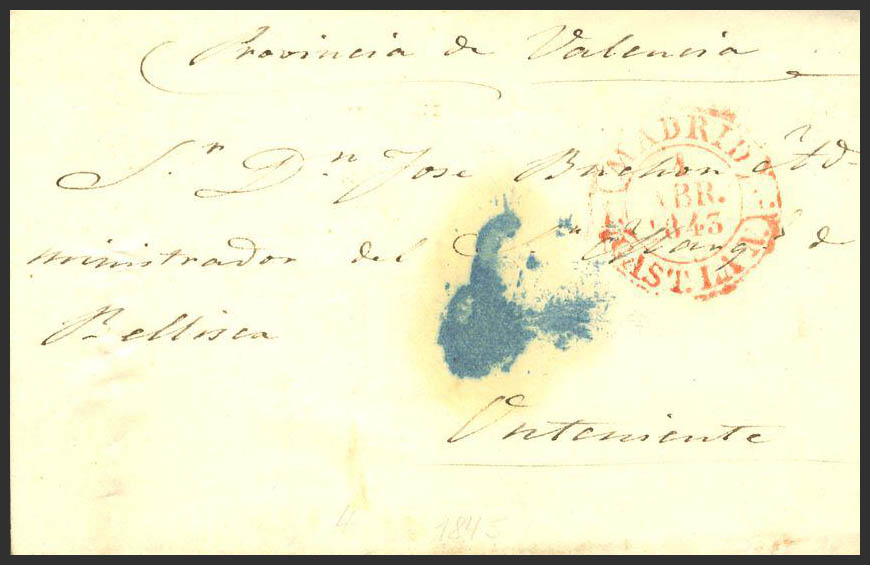 Provincia de Valencia
S.r D.n Jose Buchon Ad-
ministrador del S.or Marq.s de
Bellisca
Onteniente
MADRID
1
ABR.
1843
CAST. LA N.
4 1845